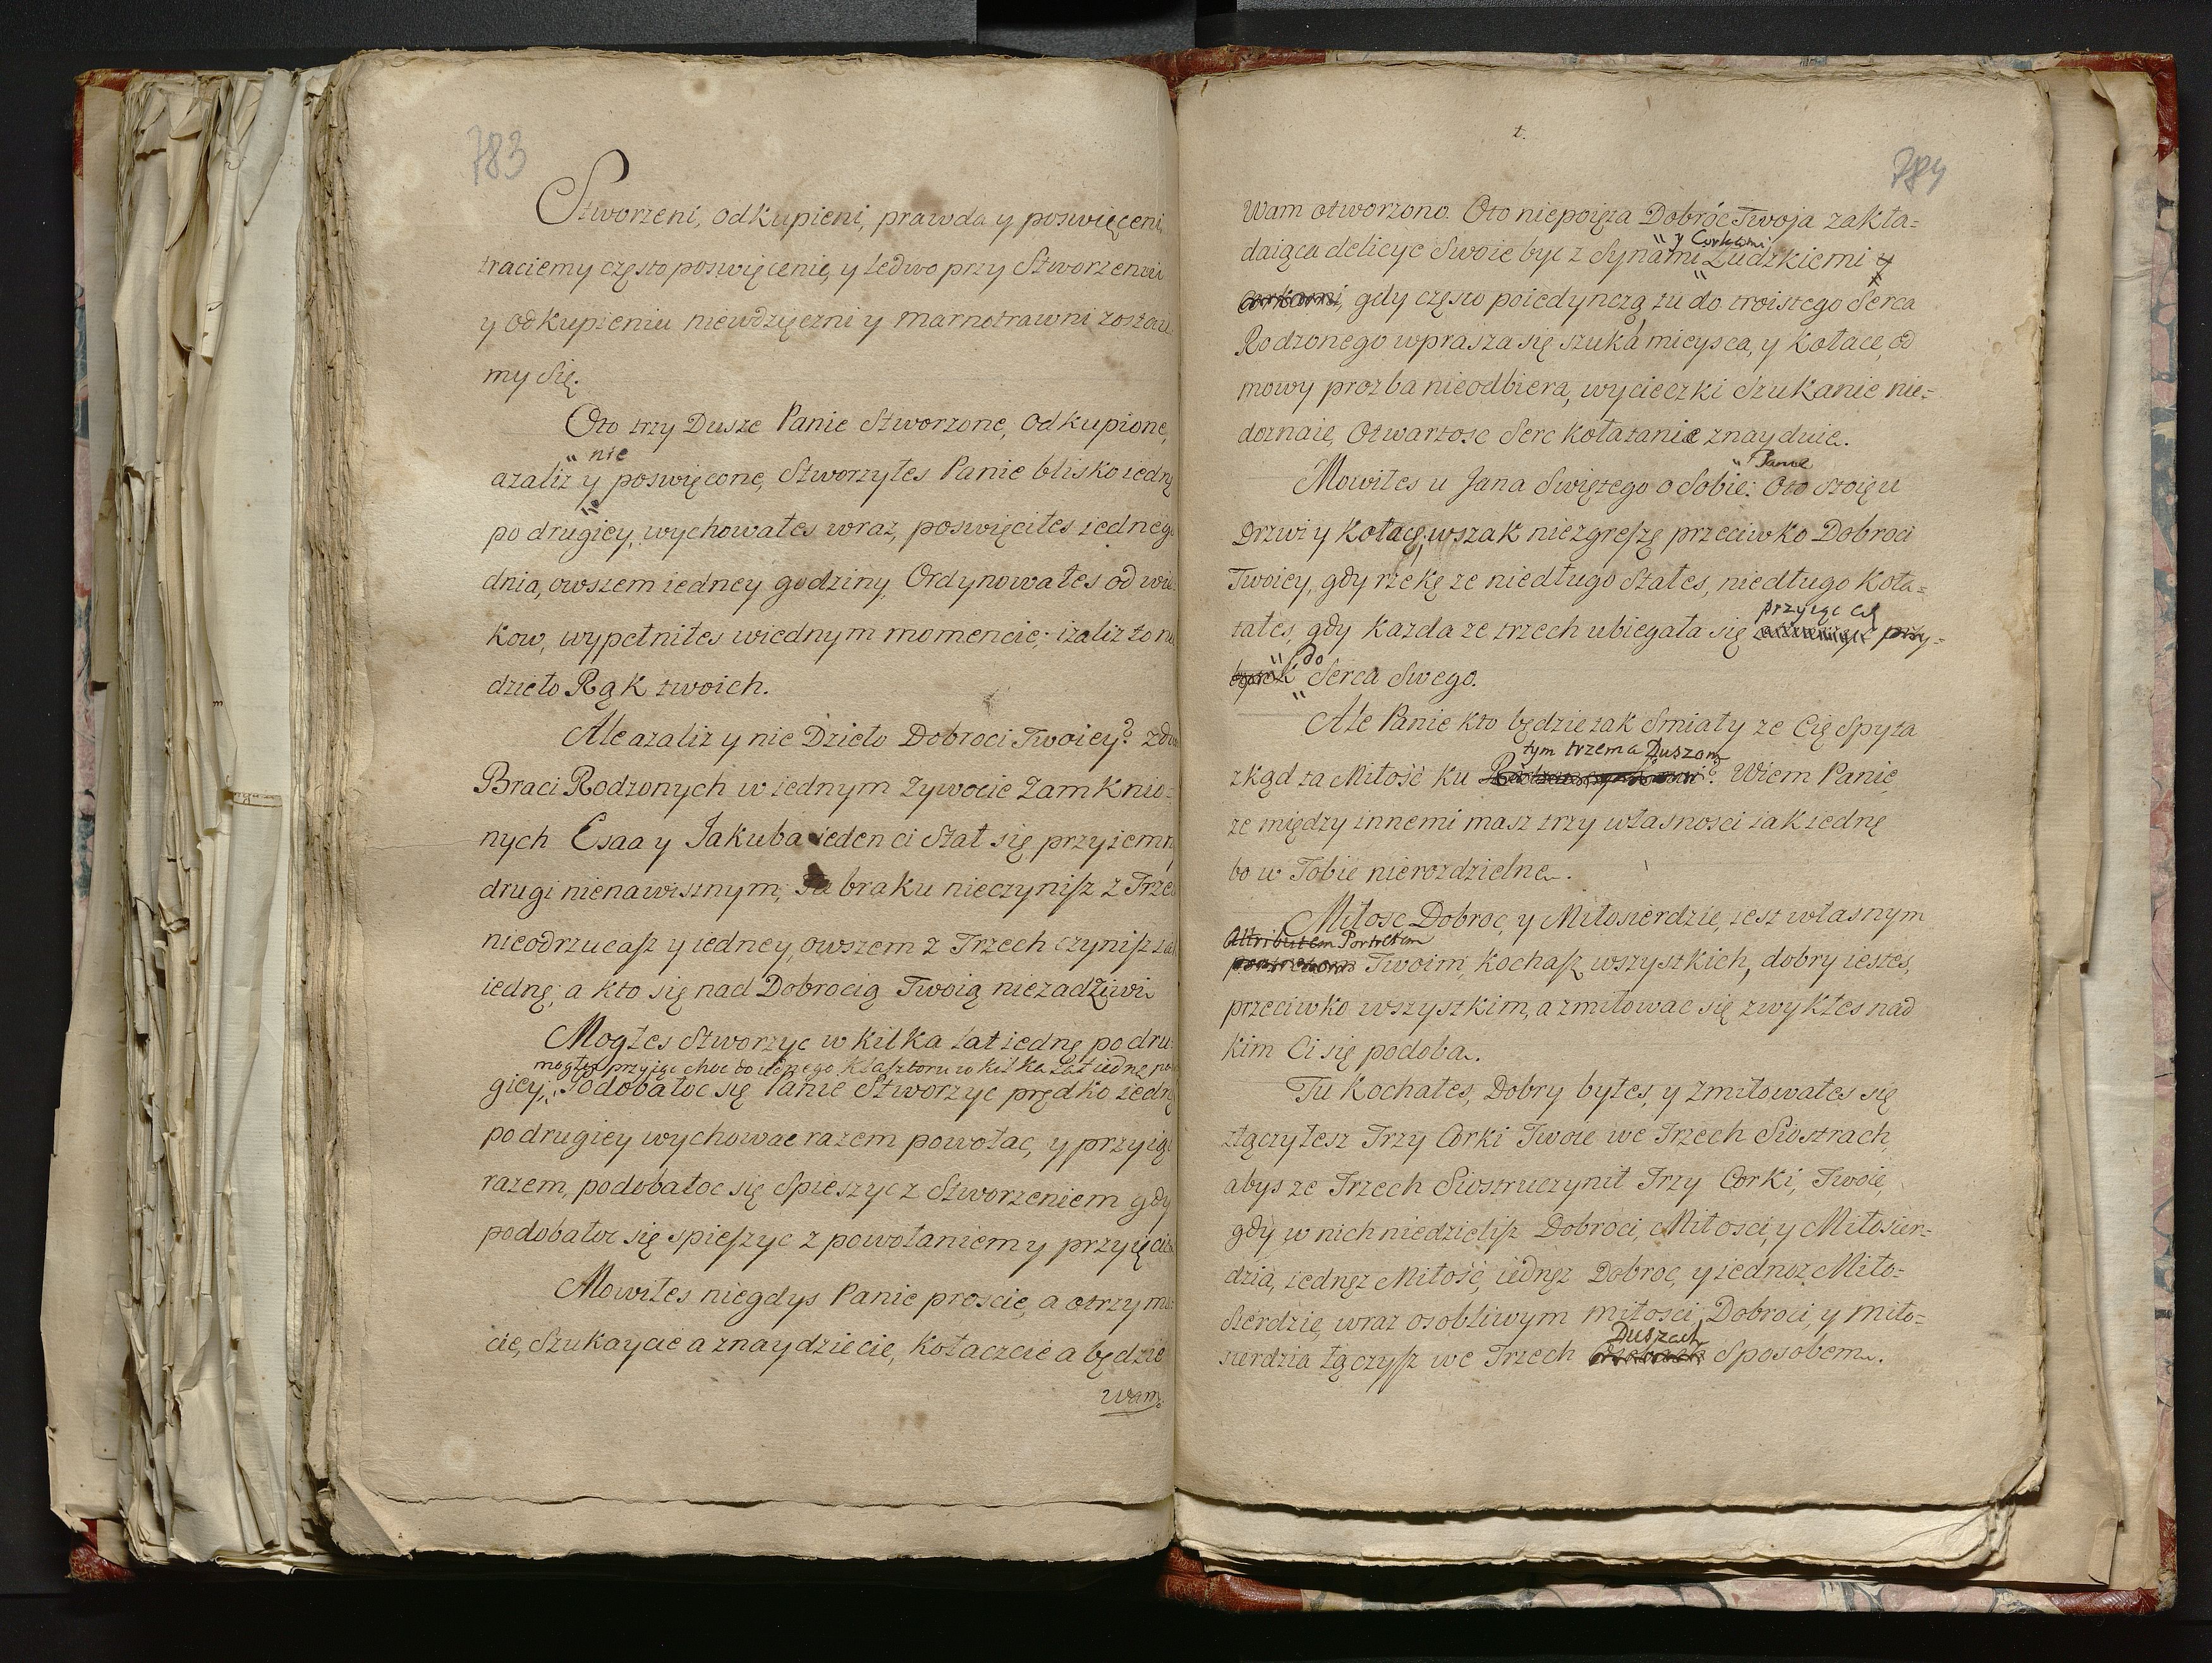 783
Stworzeni, odkupieni, prawda y poswięceni,
traciemy często poswięcenie, y ledwo przy Stworzeniu
y odkupieniu niewdzięczni y marnotrawni zostau
my się.
Oto trzy Dusze Panie Stworzone, odkupione,
" nie
azaliz y poswięcone, Stworzyłes Panie blisko iednę
po drugiey, wychowałes wraz, poswięciłes iedneg
dnia, owszem iedney godziny, Ordynowałes od wie
kow, wypełniłes wiednym momencie; izaliz to n
dzieło Rąk twoich.
Ale azaliz y nie Dzieło Dobroci Twoiey? z
Braci Rodzonych w iednym Zywocie Zamknio=
nych Esaa y Jakuba ieden ci Stał się przyiemn
drugi nienawistnym; Tu braku nieczynisz z Trze
nieodrzucasz y iedney, owszem z Trzech czynisz
iednę; a kto się nad Dobrocią Twoią niezadziwi
Mogłes Stworzyc w kilka lat iednę po dru=
mogłes przyiąc choc do iednego Klasztoru w kilka Lat iednę po
giey, Podobałoc się Panie Stworzyc prędko iednę
po drugiey wychowac razem powołac, y przyiąc
razem, podobałoc się Spieszyc z Stworzeniem gdy
podobałoc się spieszyc z powołaniem y przyięci
Mowiłes niegdys Panie proscie, a otrzyma
cie, Szukaycie a znaydziecie, Kołaczcie a będzie
wam
t.
784
Wam otworzono. Oto niepoięta Dobróć Twoja zakła=
" y Corkami
daiąca delicye Swoie byc z Synami Ludzkiemi y
Corkami, gdy często poiedynczą tu do troistego Serca
Rodzonego wprasza się szuka mieysca, y Kołace, od
mowy prozba nieodbiera, wycieczki Szukanie nie=
doznaie, Otwartosc Serc kołatanie znayduie.
" Panie
Mowiłes u Jana Swiętego o Sobie: Oto stoię u
Drzwi y kołacę, wszak niezgreszę przeciwko Dobroci
Twoiey, gdy rzekę ze niedługo Stałes, niedługo Koła=
przyiąc Cię
tałes, gdy kazda ze trzech ubiegała się przy=
" do
bytek Serca Swego.
Ale Panie kto będzie tak Smiały ze Cię Spyta
tym trzema Duszom
zkąd ta Miłość ku ? Wiem Panie,
ze między innemi masz trzy własnosci iak iednę
bo w Tobie nierozdzielne.
Miłosc, Dobroc, y Miłosierdzie, iest własnym
Attributem Portretem
portretem Twoim, Kochasz wszystkich, dobry iestes,
przeciwko wszystkim, a zmiłowac się zwykłes nad
kim Ci się podoba.
Tu Kochałes, Dobry byłes, y Zmiłowałes się
złączyłesz Trzy Corki Twoie we Trzech Siostrach,
abys ze Trzech Siostr uczynił Trzy Corki, Twoie,
gdy w nich niedzielisz Dobroci, Miłosci, y Miłosier=
dzia, iednęz Miłość, iednęz Dobroc, y iednoz Miło=
Sierdzie, wraz osobliwym miłosci, Dobroci, y miło=
Duszach
sierdzia łączysz we Trzech Osobach Sposobem.